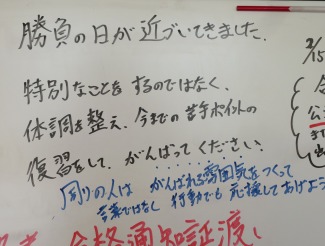 勝負の日が近づいてきました.
特別なことをするのではなく、
体調を整え、今までの苦手ポイントの
復習をして、がんばってください.
周りの人は がんばれる雰囲気をつくって
言葉ではなく 行動でも 応援してあげよう
合格通知証渡し
2/15